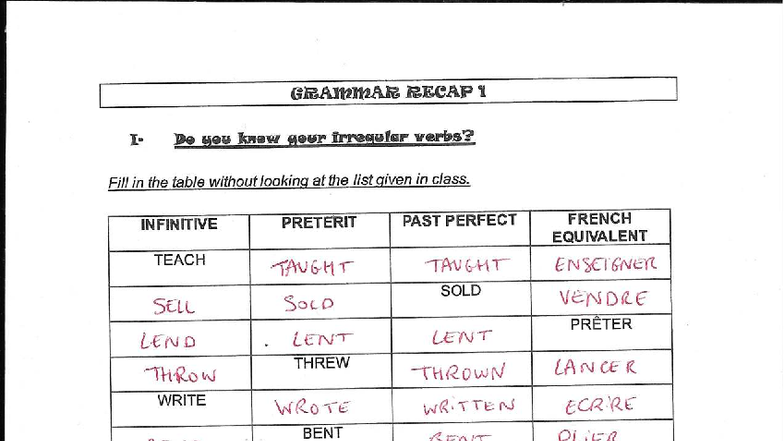 GRAMMAR RECAP 1
I- Do you know your irregular verbs?
Fill in the table without looking at the list given in class.
INFINITIVE PRETERIT PAST PERFECT FRENCH EQUIVALENT
TEACH TAUGHT TAUGHT ENSEIGNER
SELL SOLD SOLD VENDRE
LEND LENT LENT PRÊTER
THROW THREW THROWN LANCER
WRITE WROTE WRITTEN ECRIRE
BENT BENT PLIER